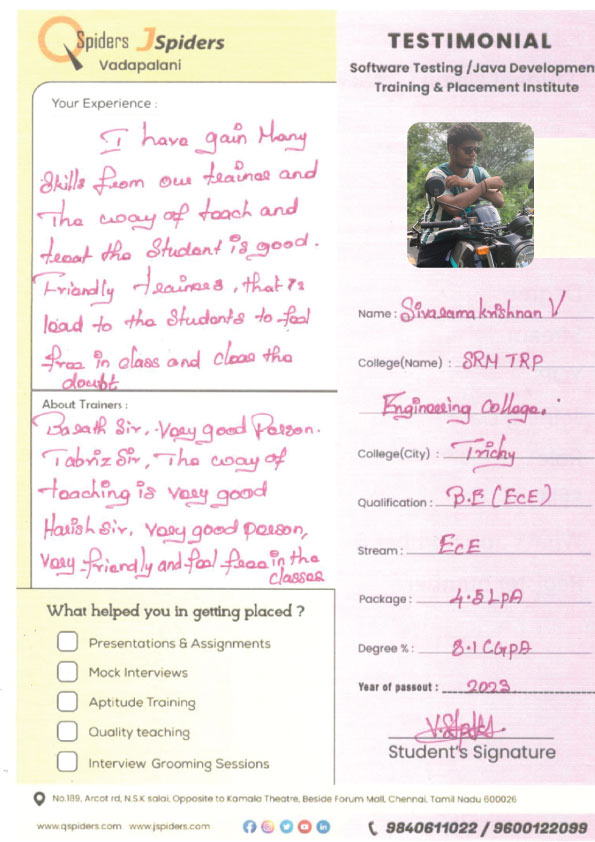 QSpiders JSpiders
Vadapalani
Your Experience :
I have gain Many
Skills from our trainer and
The way of teach and
treat the Student is good.
Friendly trainers, that is
lead to the Students to feel
free in class and clear the
doubt
About Trainers :
Barath Sir, Very good Person.
Tabriz Sir, The way of
teaching is very good
Harish Sir, very good person,
Very friendly and feel free in the
classes
What helped you in getting placed ?
Presentations & Assignments
Mock Interviews
Aptitude Training
Quality teaching
Interview Grooming Sessions
TESTIMONIAL
Software Testing /Java Developmen
Training & Placement Institute
Name : Sivaramakrishnan V
College(Name) : SRM TRP
Engineering College.
College(City) : Trichy
Qualification : B.E (ECE)
Stream : ECE
Package : 4.5 LPA
Degree % : 8.1 CGPA
Year of passout : 2023
Student's Signature
No.189, Arcot rd, N.S.K salai, Opposite to Kamala Theatre, Beside Forum Mall, Chennai, Tamil Nadu 600026
www.qspiders.com www.jspiders.com
9840611022 / 9600122099